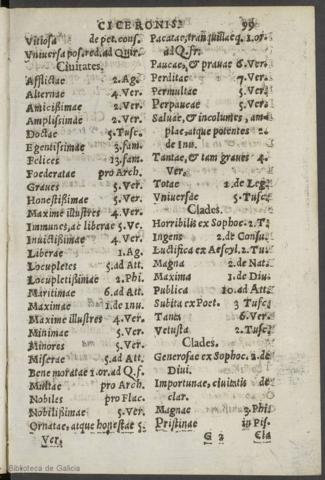 CICERONIS. 99
Vitiosa de pet. conſ.
Vniuerſa poſ. red. ad Quir.
Ciuitates.
Afflictae 2. Ag.
Alternae 4. Ver.
Amicißimae 2. Ver.
Amplißimae 2. Ver.
Doctae 5. Tuſc.
Egentißimae 3. fam.
Felices 13. fam.
Foederatae pro Arch.
Graues 5. Ver.
Honeſtißimae 5. Ver.
Maxime illuſtres 4. Ver.
Immunes, ac liberae 5. Ve.
Inuictißimae 4. Ver.
Liberae 1. Ag.
Locupletes 5. ad Att.
Locupletißimae 2. Phi.
Maritimae 6. ad Att.
Maximae 1. de inu.
Maxime illuſtres 4. Ver.
Minimae 5. Ver.
Minores 5. Ver.
Miſerae 5. ad Att.
Bene moratae 1. or. ad Q. f.
Multae pro Arch.
Nobiles pro Flac.
Nobilißimae 5. Ver.
Ornatae, atque honeſtae 5.
Ver.
Pacatae, tranquillaeq. 1. or.
ad Q. fr.
Paucae, & prauae 6. Ver.
Perditae 7. Ver.
Permultae 5. Ver.
Perpaucae 5. Ver.
Saluae, & incolumes, am-
plae, atque potentes 2.
de Inu.
Tantae, & tam graues 4.
Ver.
Totae 1. de Leg.
Vniuerſae 5. Tuſc.
Clades.
Horribilis ex Sophoc. 2. T.
Ingens 2. de Conſu.
Luctifica ex Aeſcyl. 2. Tu.
Magna 2. de Nat.
Maxima 1. de Diu.
Publica 10. ad Att.
Subita ex Poet. 3 Tuſc.
Tanta 6. Ver.
Vetuſta 2. Tuſc.
Clades.
Generoſae ex Sophoc. 2. de
Diui.
Importunae, ciuitatis de
clar.
Magnae 3. Phi.
Priſtinae in Piſ.
G 2 Cla
Biblioteca de Galicia